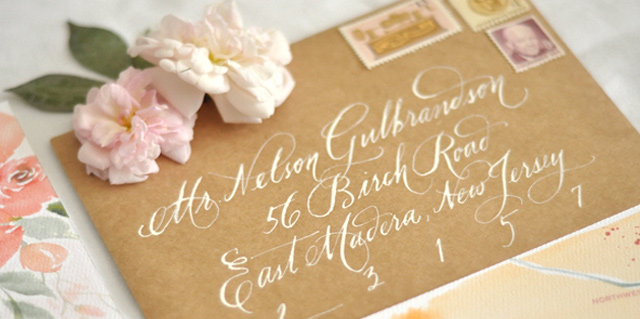 Mr. Nelson Gulbrandson
56 Birch Road
East Madera, New Jersey
3 1 5 7
NORTHWE